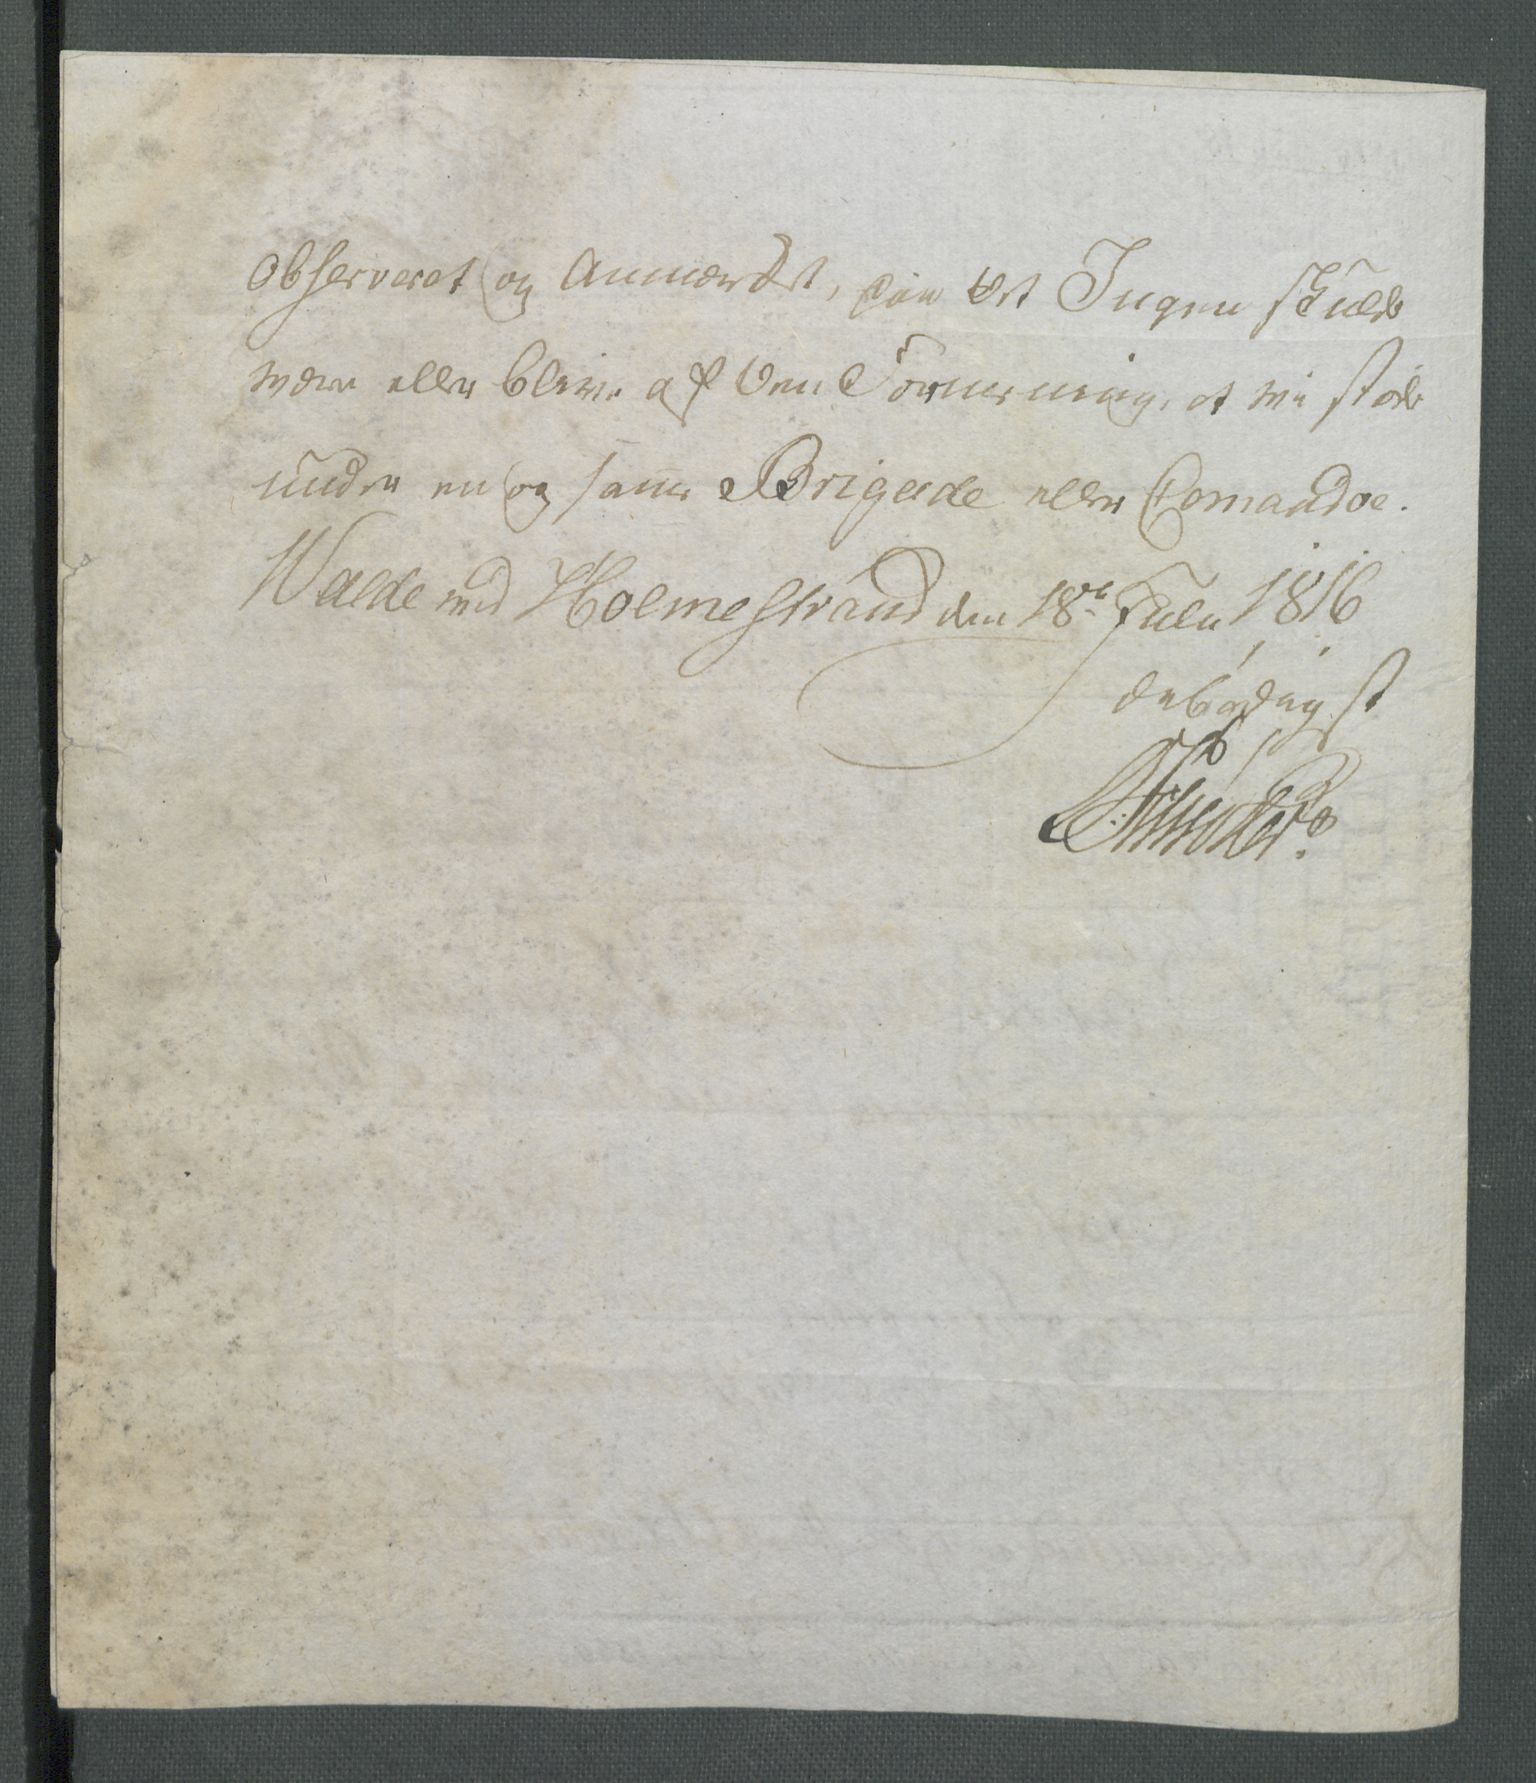 observeret og Anmærket, paa det Ingen skulde
være eller blive af den Formening, at vi stode
under en og samme Brigade eller Comandoe.
Walde ved Holmestrand den 18de July 1816
ærbødigst